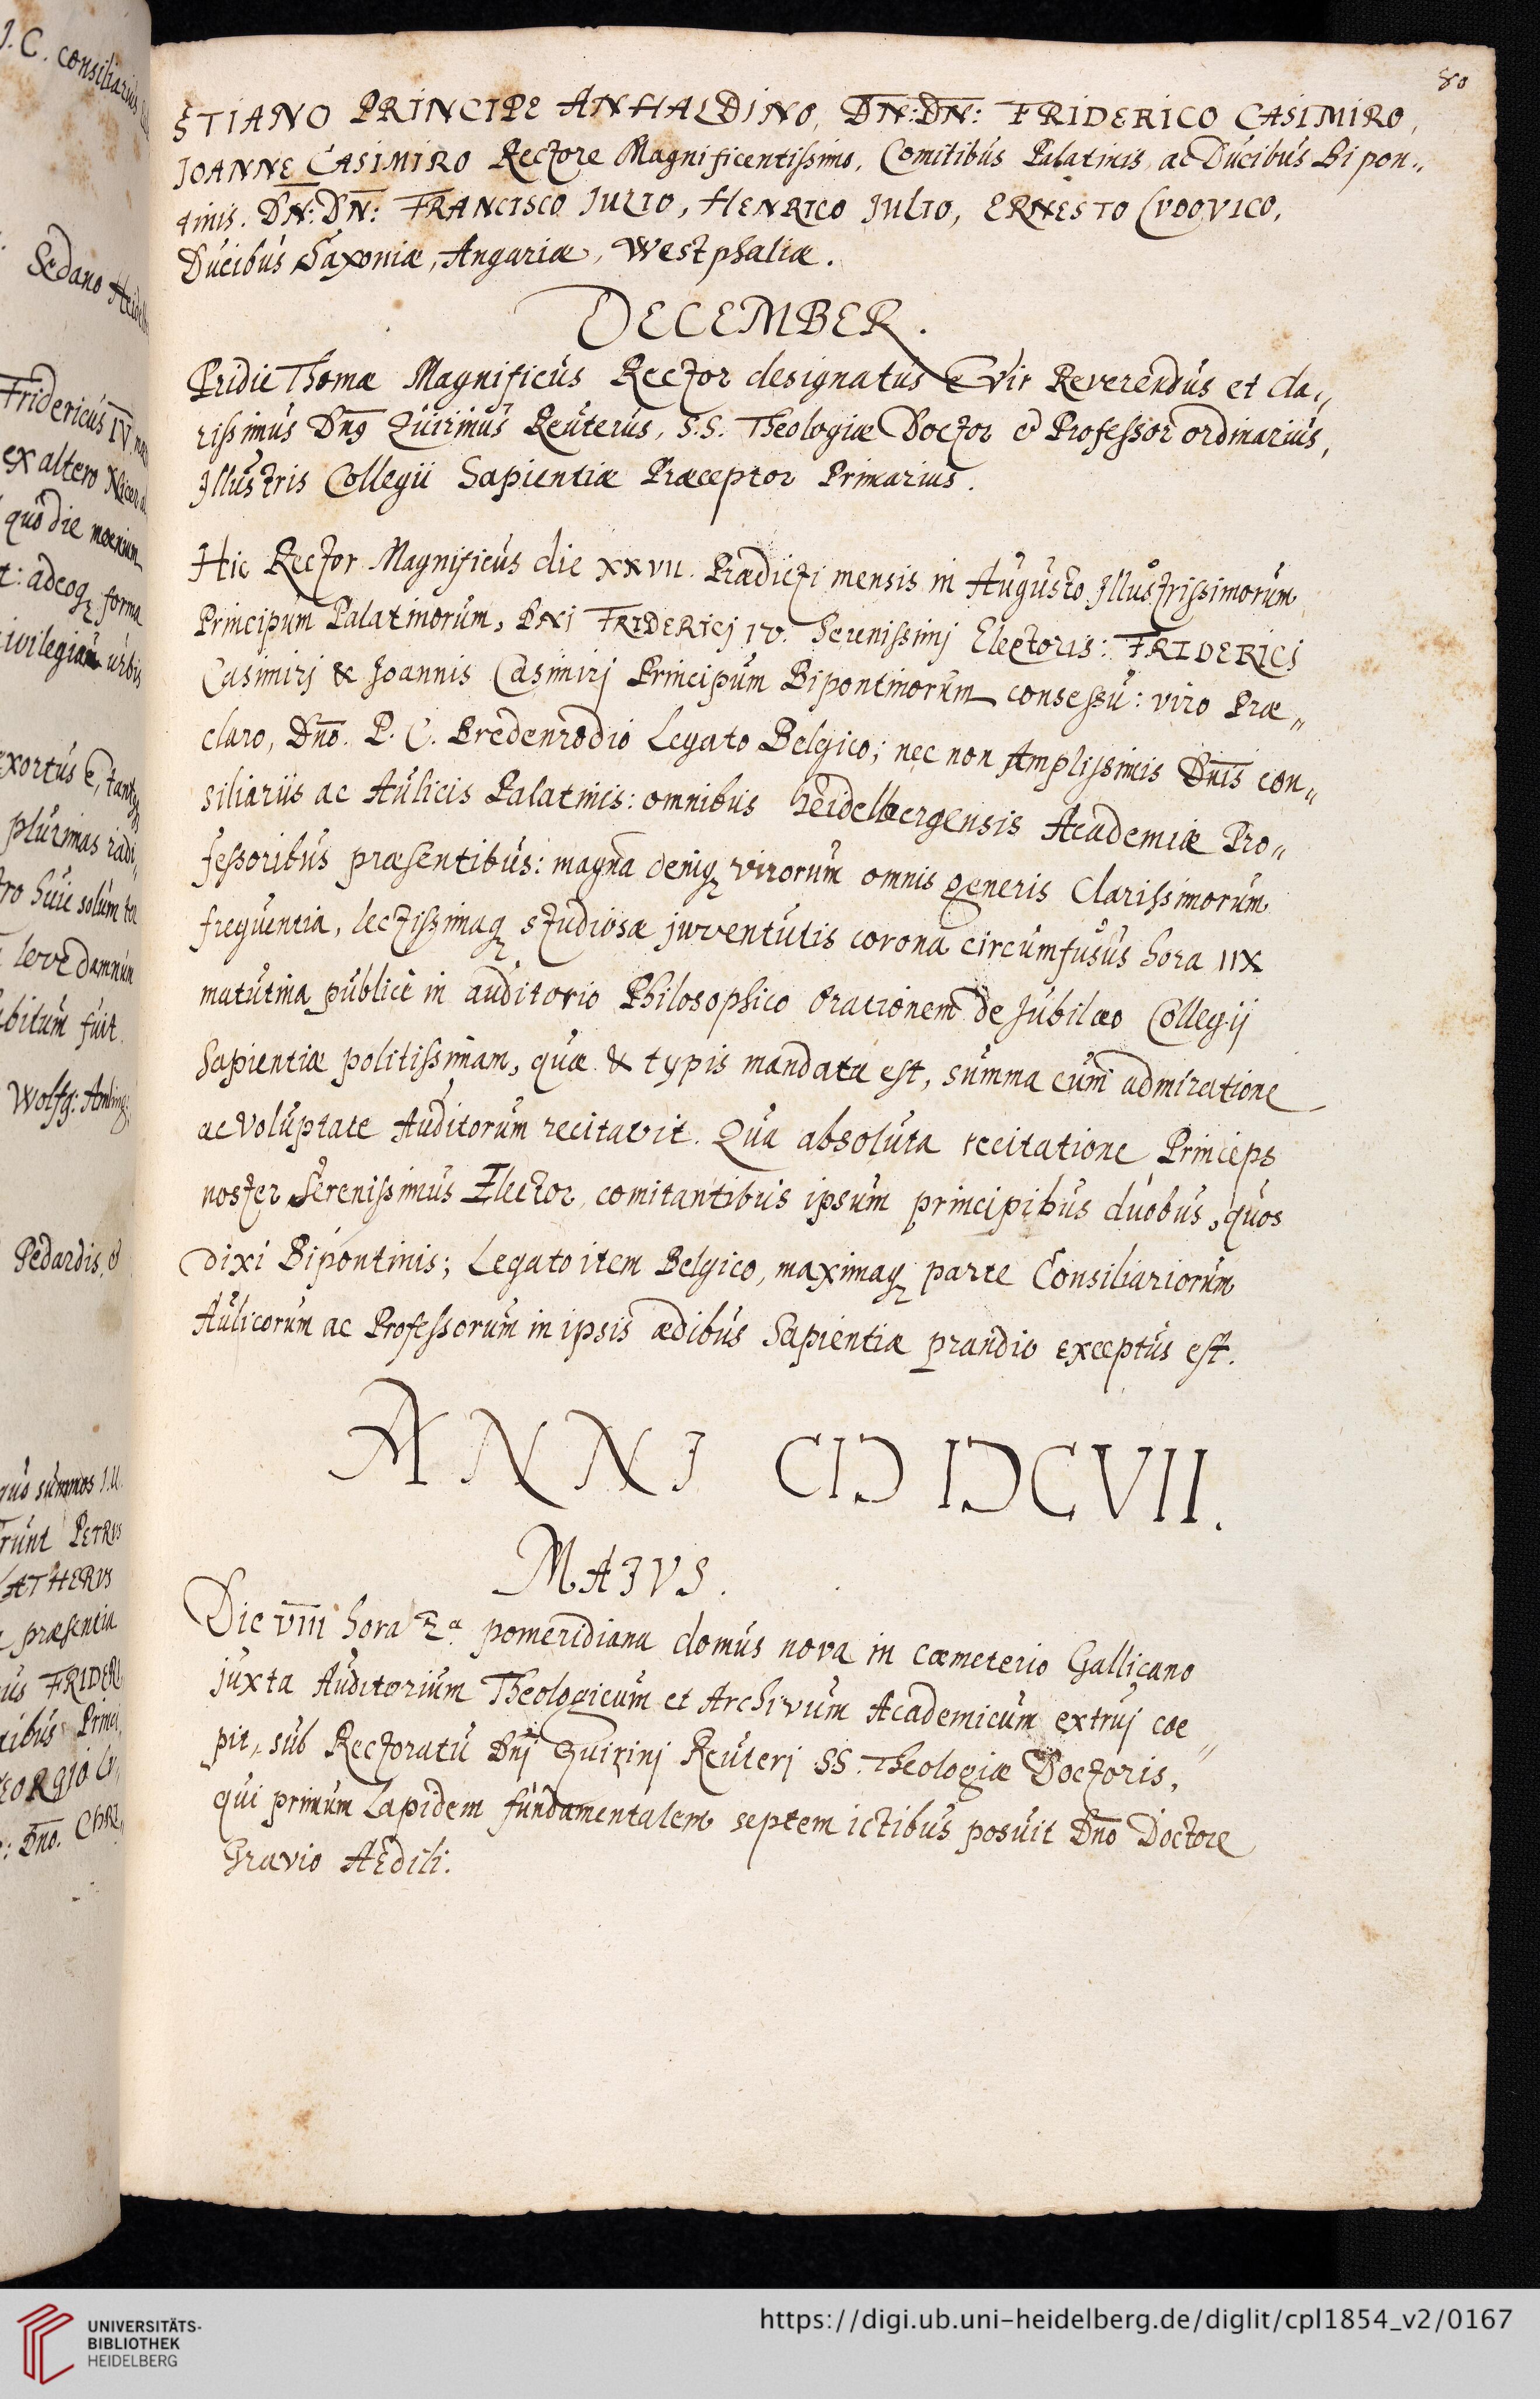 J. C. consiliarius
Sedano
Fridericus IV.
ex altero
quo die moenium
t: adeoq; forma
ivilegiam urbis
exortus e,
plurimas radi„
ro huic solum
leve damnum
bitum fuit.
Wolfg:
Pedardis, &
quo summos I.U.
runt PETRUS
LATHERUS
præsentia
us FRIDERI
tibus Princi,
EORGIO LU,
: Dno. CHRI„
80
STIANO PRINCIPE ANHALDINO, DN: DN: FRIDERICO CASIMIRO,
JOANNE CASIMIRO Rectore Magnificentissimo, Comitibus Palatinis ac Ducibus Bipon„
tinis. DN: DN: FRANCISCO JULIO, HENRICO JULIO, ERNESTO LVDOVICO,
Ducibus Saxoniæ, Angariæ, Westphaliæ.
DECEMBER.
Pridie Thomæ Magnificus Rector designatus e Vir Reverendus et cla„
rissimus Dn9 Quirinus Reuterus, S.S. Theologiæ Doctor & Professor ordinarius,
Illustris Collegii Sapientiæ Præceptor Primarius.
Hic Rector Magnificus die XXVII. Prædicti mensis in Augusto Illustrissimorum
Principum Palatinorum, Dni FRIDERICj IV. Serenissimj Electoris: FRIDERICj
Casimirj & Joannis Casimirj Principum Bipontinorum consessu: viro Præ„
claro, Dno. P. C. Bredenrodio Legato Belgico; nec non Amplissimis Dnis con„
siliariis ac Aulicis Palatinis: omnibus heidelbergensis Academiæ Pro„
fessoribus præsentibus: magna deniq; virorum omnis generis Clarissimorum
frequentia, lectissimaq; studiosæ juventutis corona circumfusus hora IIX
matutina publice in auditorio Philosophico Orationem de Jubilæo Collegij
Sapientiæ politissimam, quæ & typis mandata est, summa cum admiratione
ac voluptate Auditorum recitavit. Qua absoluta recitatione Princeps
noster Serenissimus Elector, comitantibus ipsum principibus duobus, quos
dixi Bipontinis; Legato item Belgico, maximaq; parte Consiliariorum
Aulicorum ac Professorum in ipsis ædibus Sapientiæ prandio exceptus est.
ANNI CIↃ IↃCVII.
MAJVS.
Die VIII hora 2.a pomeridiana domus nova in Cœmeterio Gallicano
juxta Auditorium Theologicum et Archivum Academicum extruj coe„
pit, sub Rectoratu Dnj Quirinj Reuterj SS. Theologiæ Doctoris,
qui primum Lapidem fundamentalem septem ictibus posuit Dno Doctore
Gravio Aedili.
UNIVERSITÄTS-
BIBLIOTHEK
HEIDELBERG
https://digi.ub.uni-heidelberg.de/diglit/cpl1854_v2/0167